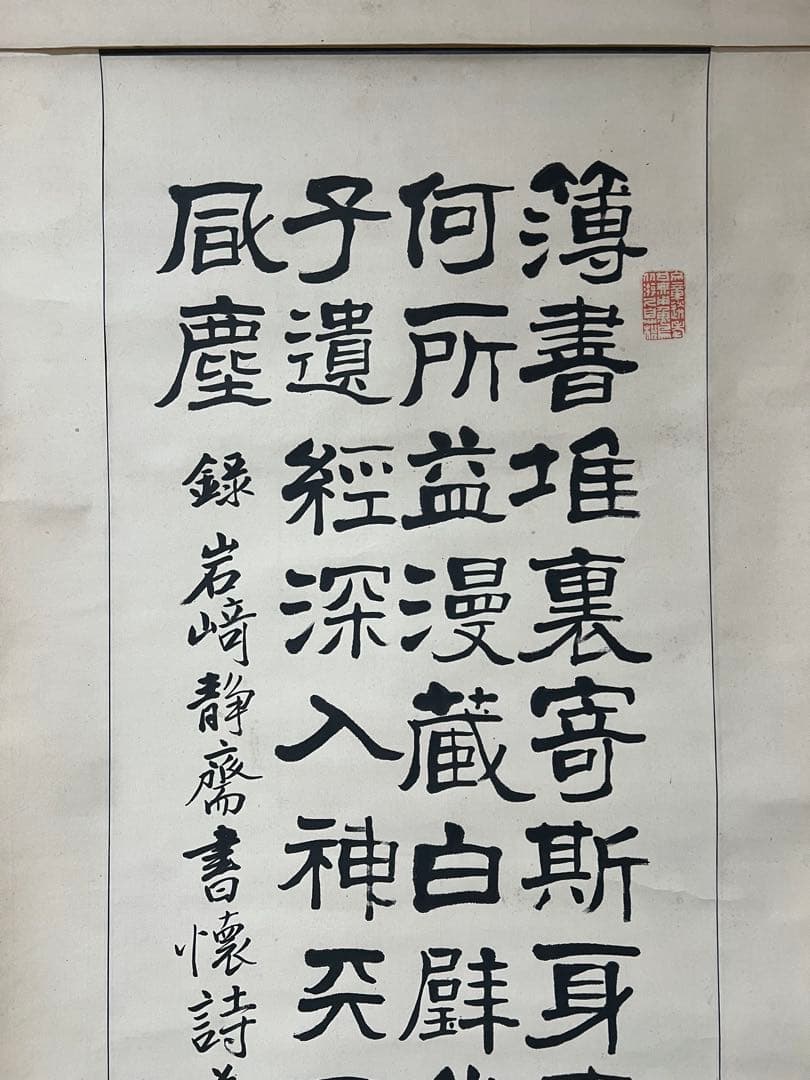 簿書堆裏寄斯身
何所益漫藏白璧
子遺經深入神
塵
錄岩﨑静齋書懷詩